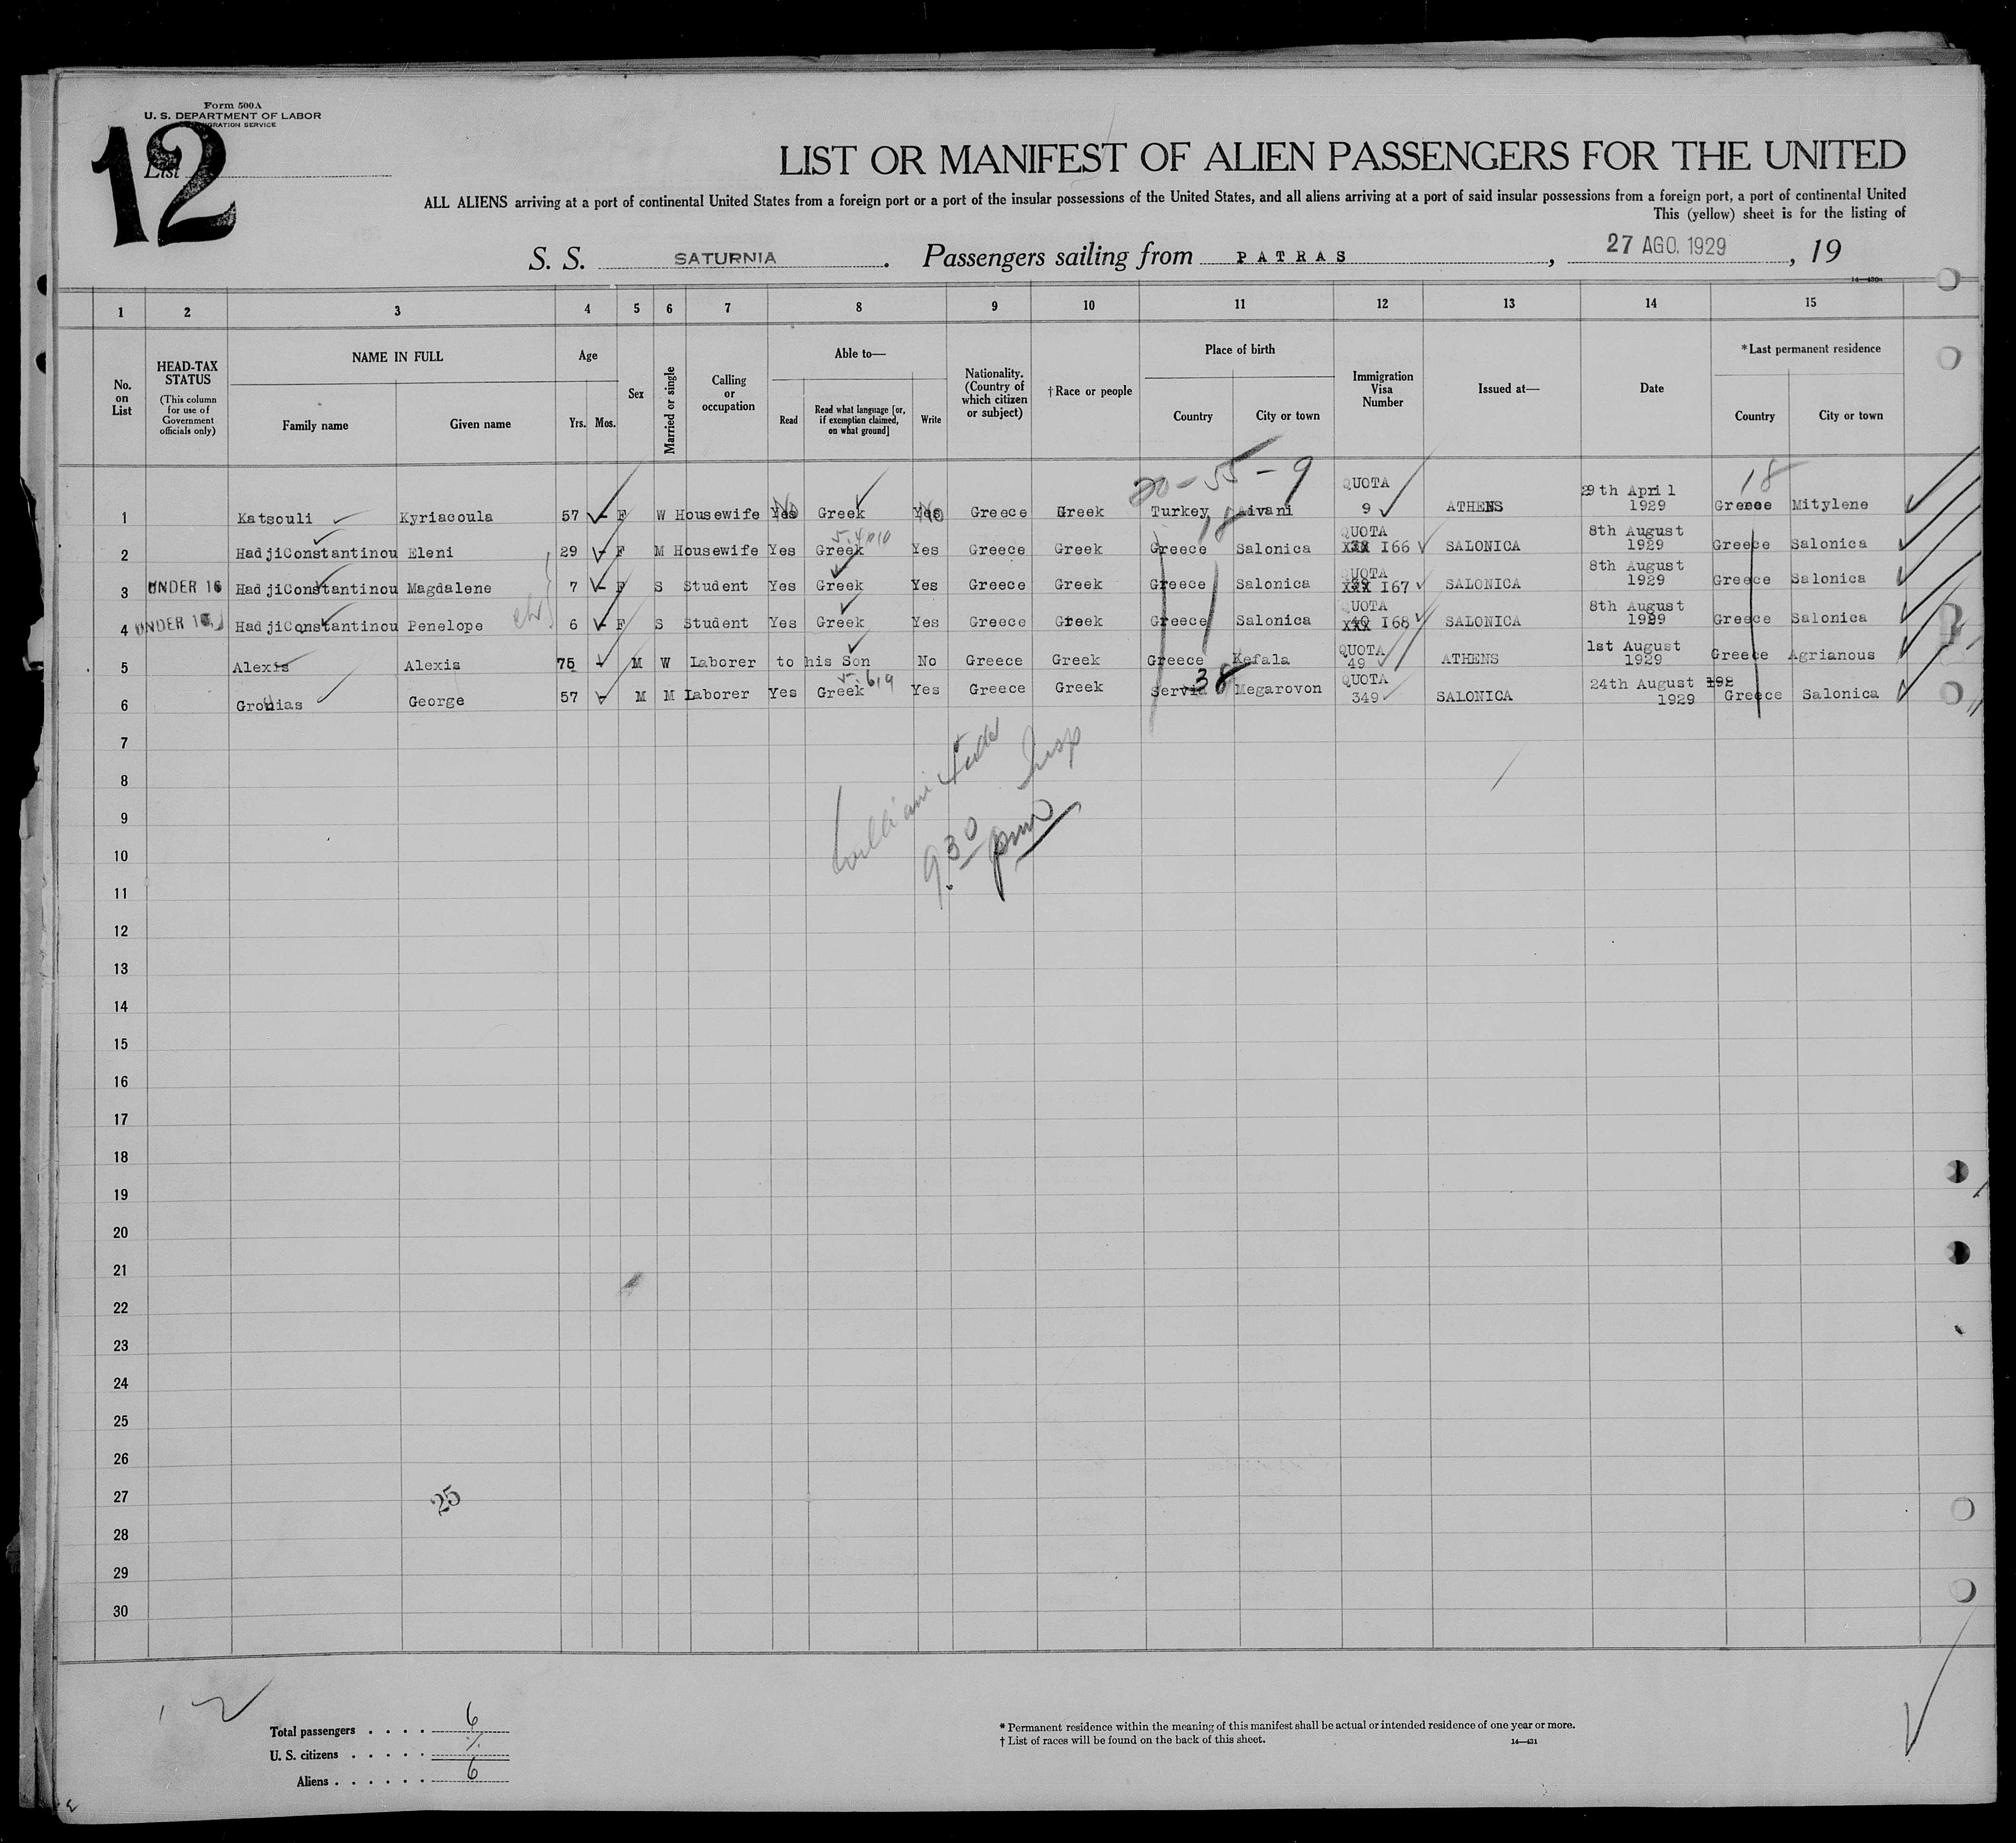 Form 500A
U. S. DEPARTMENT OF LABOR
IMMIGRATION SERVICE
12
List
LIST OR MANIFEST OF ALIEN PASSENGERS FOR THE UNITED
ALL ALIENS arriving at a port of continental United States from a foreign port or a port of the insular possessions of the United States, and all aliens arriving at a port of said insular possessions from a foreign port, a port of continental United
This (yellow) sheet is for the listing of
S. S. SATURNIA . Passengers sailing from PATRAS , 27 AGO. 1929 , 19
14—430a
1 2 3 4 5 6 7 8 9 10 11 12 13 14 15
No. on List
HEAD-TAX STATUS
(This column for use of Government officials only)
NAME IN FULL
Family name Given name
Age
Yrs. Mos.
Sex
Married or single
Calling or occupation
Able to—
Read
Read what language [or, if exemption claimed, on what ground]
Write
Nationality. (Country of which citizen or subject)
† Race or people
Place of birth
Country City or town
Immigration Visa Number
Issued at—
Date
*Last permanent residence
Country City or town
20-55-9
18
1 Katsouli Kyriacoula 57 - F W Housewife Yes No Greek Yes No Greece Greek Turkey Aivani QUOTA 9 ATHENS 29th April 1929 Greece Mitylene
18
5.4010
2 HadjiConstantinou Eleni 29 - F M Housewife Yes Greek Yes Greece Greek Greece Salonica QUOTA XXX 166 SALONICA 8th August 1929 Greece Salonica
3 UNDER 16 HadjiConstantinou Magdalene 7 - F S Student Yes Greek Yes Greece Greek Greece Salonica QUOTA XXX 167 SALONICA 8th August 1929 Greece Salonica
4 UNDER 16 HadjiConstantinou Penelope 6 - F S Student Yes Greek Yes Greece Greek Greece Salonica QUOTA XXX 168 SALONICA 8th August 1929 Greece Salonica
5 Alexis Alexis 75 - M W Laborer to his Son No Greece Greek Greece Kefala QUOTA 49 ATHENS 1st August 1929 Greece Agrianous
38
6 George 57 - M M Laborer Yes Greek Yes Greece Greek Servia Megarovon QUOTA 349 SALONICA 24th August 192 1929 Greece Salonica
7
8
9
9.30 pm
10
11
12
13
14
15
16
17
18
19
20
21
22
23
24
25
26
27
25
28
29
30
Total passengers . . . . 6
U. S. citizens . . . . .
Aliens . . . . . . 6
* Permanent residence within the meaning of this manifest shall be actual or intended residence of one year or more.
† List of races will be found on the back of this sheet.
14—431